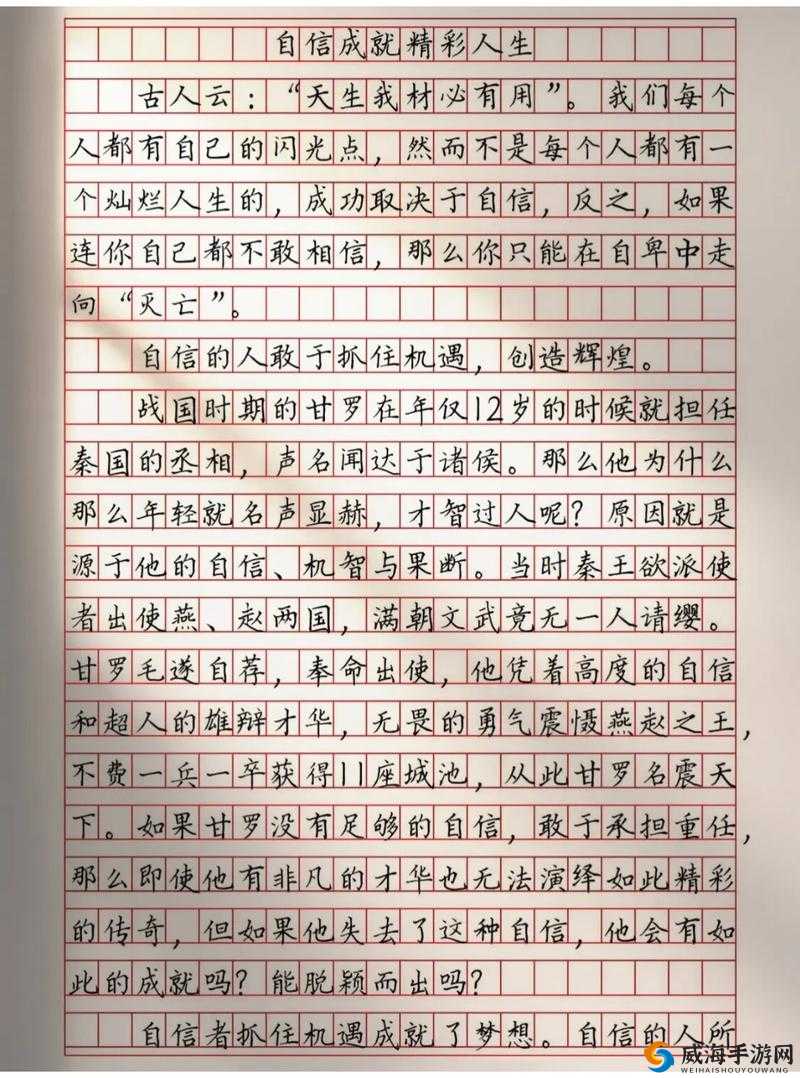 自信成就精彩人生
古人云：“天生我材必有用”。我们每个
人都有自己的闪光点，然而不是每个人都有一
个灿烂人生的，成功取决于自信，反之，如果
连你自己都不敢相信，那么你只能在自卑中走
向“灭亡”。
自信的人敢于抓住机遇，创造辉煌。
战国时期的甘罗在年仅12岁的时候就担任
秦国的丞相，声名闻达于诸侯。那么他为什么
那么年轻就名声显赫，才智过人呢？原因就是
源于他的自信、机智与果断。当时秦王欲派使
者出使燕、赵两国，满朝文武竟无一人请缨。
甘罗毛遂自荐，奉命出使，他凭着高度的自信
和超人的雄辩才华，无畏的勇气震慑燕赵之王，
不费一兵一卒获得11座城池，从此甘罗名震天
下。如果甘罗没有足够的自信，敢于承担重任，
那么即使他有非凡的才华也无法演绎如此精彩
的传奇，但如果他失去了这种自信，他会有如
此的成就吗？能脱颖而出吗？
自信者抓住机遇成就了梦想。自信的人所
威海手游网
WEIHAISHOUYOUWANG